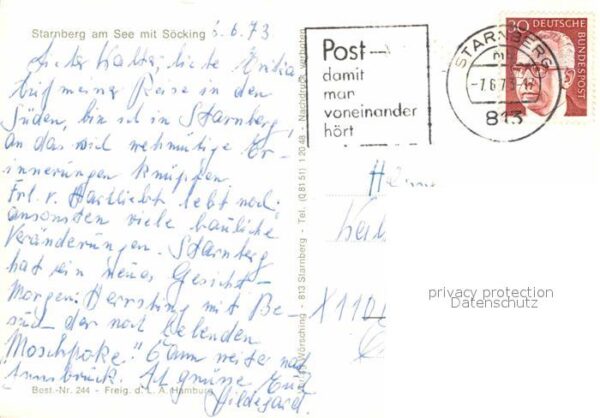 Starnberg am See mit Söcking
6.6.73
Lieber Walter, liebe
auf meiner Reise in den
Süden, bin ich in Starnberg,
an das sich wehmütige Er-
innerungen knüpfen
Frl. v. Hartlieb lebt noch,
ansonsten viele bauliche
Veränderungen. Starnberg
hat ein neues Gesicht
Morgen: Herrsting mit Be-
such der noch lebenden
"Moschpoke". Dann weiter nach
Innsbruck. Es grüsst Euch
Hildegard.
Best.-Nr. 244 - Freig. d. L. A. Hamburg
Wörsching - 813 Starnberg - Tel. (0 81 51) 1 20 48 - Nachdruck verboten
Post
damit
man
voneinander
hört
STARNBERG
-7.6.73
813
30
DEUTSCHE
BUNDESPOST
privacy protection
Datenschutz